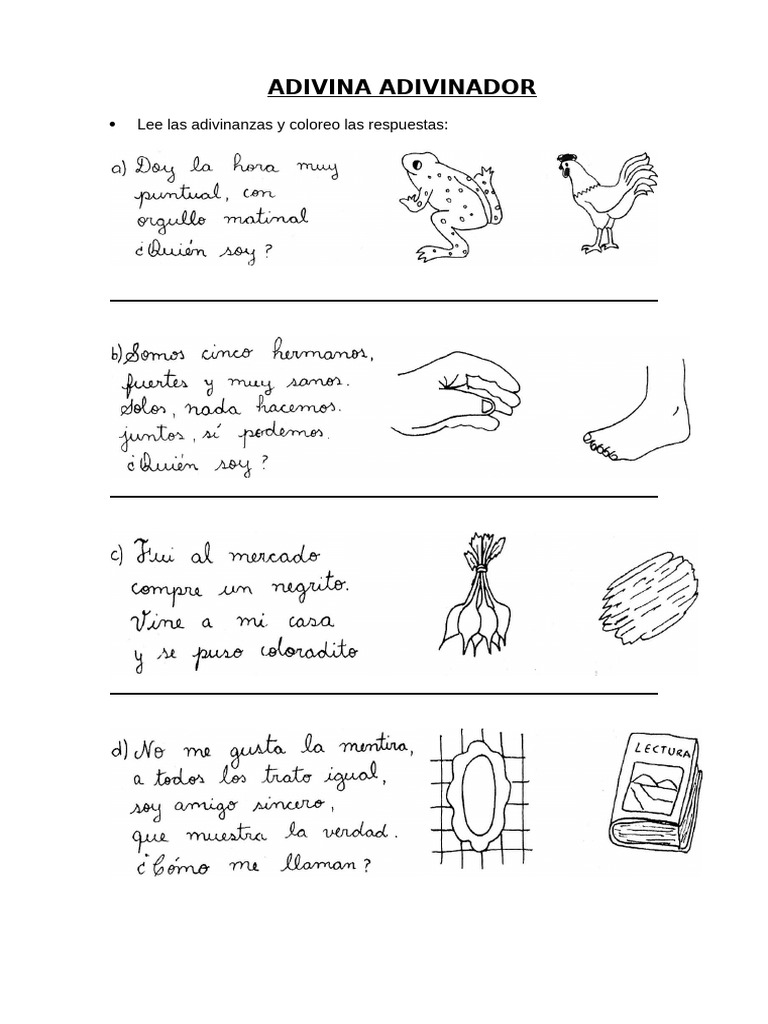 ADIVINA ADIVINADOR
• Lee las adivinanzas y coloreo las respuestas:
a) Doy la hora muy
puntual, con
orgullo matinal
¿Quién soy?
b) Somos cinco hermanos,
fuertes y muy sanos.
Solos, nada hacemos.
juntos, sí podemos.
¿Quién soy?
c) Fui al mercado
compre un negrito.
Vine a mi casa
y se puso coloradito
d) No me gusta la mentira,
a todos los trato igual,
soy amigo sincero,
que muestra la verdad.
¿Cómo me llaman?
LECTURA